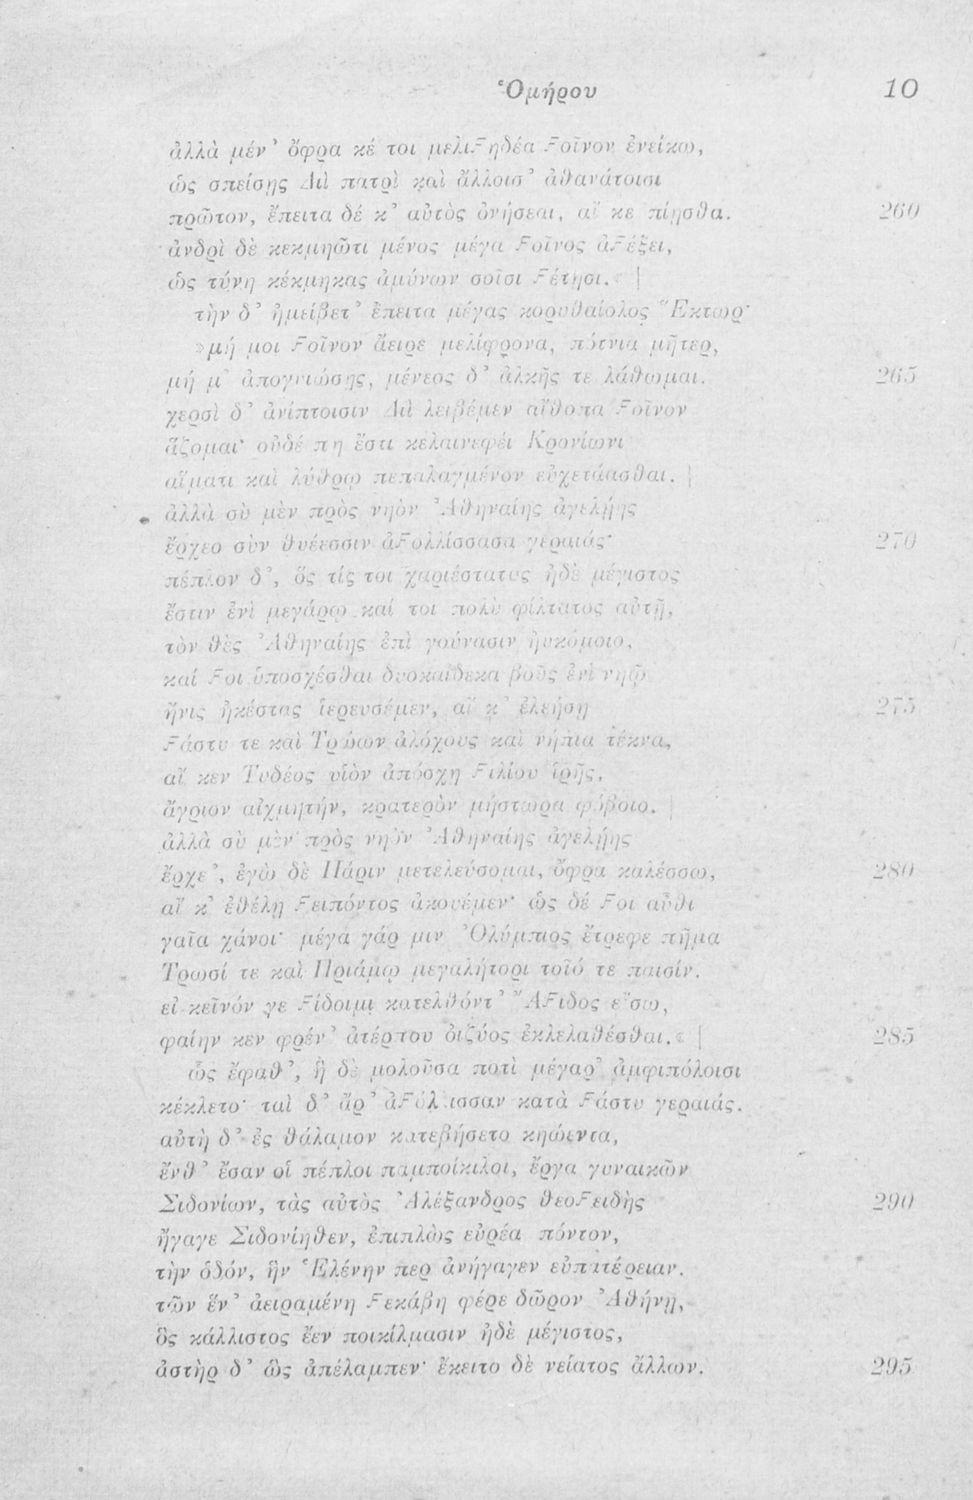 Ὁμήρου 10
ἀλλὰ μέν’ ὄφρα κέ τοι μελιϝηδέα ϝοῖνον ἐνείκω,
ὡς σπείσῃς Διὶ πατρὶ καὶ ἄλλοισ’ ἀθανάτοισι
πρῶτον, ἔπειτα δέ κ’ αὐτὸς ὀνήσεαι, αἴ κε πίῃσθα. 260
ἀνδρὶ δὲ κεκμηῶτι μένος μέγα ϝοῖνος ἀϝέξει,
ὡς τύνη κέκμηκας ἀμύνων σοῖσι ϝέτῃσι.« |
τὴν δ’ ἠμείβετ’ ἔπειτα μέγας κορυθαίολος Ἕκτωρ·
»μή μοι ϝοῖνον ἄειρε μελίφρονα, πότνια μῆτερ,
μή μ’ ἀπογυιώσῃς, μένεος δ’ ἀλκῆς τε λάθωμαι. 265
χερσὶ δ’ ἀνίπτοισιν Διὶ λειβέμεν αἴθοπα ϝοῖνον
ἅζομαι· οὐδέ πῃ ἔστι κελαινεφέι Κρονίωνι
αἵματι καὶ λύθρῳ πεπαλαγμένον εὐχετάασθαι. |
ἀλλὰ σὺ μὲν πρὸς νηὸν Ἀθηναίης ἀγελῄης
ἔρχεο σὺν θυέεσσιν ἀϝολλίσσασα γεραιάς· 270
πέπλον δ’, ὅς τίς τοι χαριέστατος ἠδὲ μέγιστος
ἔστιν ἐνὶ μεγάρῳ καί τοι πολὺ φίλτατος αὐτῇ,
τὸν θὲς Ἀθηναίης ἐπὶ γούνασιν ἠυκόμοιο,
καί ϝοι ὑποσχέσθαι δυοκαίδεκα βοῦς ἐνὶ νηῷ
ἤνις ἠκέστας ἱερευσέμεν, αἴ κ’ ἐλεήσῃ 275
ϝάστυ τε καὶ Τρώων ἀλόχους καὶ νήπια τέκνα,
αἴ κεν Τυδέος υἱὸν ἀπόσχῃ ϝιλίου ἱρῆς,
ἄγριον αἰχμητήν, κρατερὸν μήστωρα φόβοιο. |
ἀλλὰ σὺ μὲν πρὸς νηὸν Ἀθηναίης ἀγελῄης
ἔρχε’, ἐγὼ δὲ Πάριν μετελεύσομαι, ὄφρα καλέσσω, 280
αἴ κ’ ἐθέλῃ ϝειπόντος ἀκουέμεν· ὡς δέ ϝοι αὖθι
γαῖα χάνοι· μέγα γάρ μιν Ὀλύμπιος ἔτρεφε πῆμα
Τρωσί τε καὶ Πριάμῳ μεγαλήτορι τοῖό τε παισίν.
εἰ κεῖνόν γε ϝίδοιμι κατελθόντ’ Ἄϝιδος εἴσω,
φαίην κεν φρέν’ ἀτέρπου ὀιζύος ἐκλελαθέσθαι.« | 285
ὣς ἔφαθ’, ἣ δὲ μολοῦσα ποτὶ μέγαρ’ ἀμφιπόλοισι
κέκλετο· ταὶ δ’ ἄρ’ ἀϝόλλισσαν κατὰ ϝάστυ γεραιάς.
αὐτὴ δ’ ἐς θάλαμον κατεβήσετο κηώεντα,
ἔνθ’ ἔσαν οἱ πέπλοι παμποίκιλοι, ἔργα γυναικῶν
Σιδονίων, τὰς αὐτὸς Ἀλέξανδρος θεοϝειδὴς 290
ἤγαγε Σιδονίηθεν, ἐπιπλὼς εὐρέα πόντον,
τὴν ὁδόν, ἣν Ἑλένην περ ἀνήγαγεν εὐπατέρειαν.
τῶν ἕν’ ἀειραμένη ϝεκάβη φέρε δῶρον Ἀθήνῃ,
ὃς κάλλιστος ἔεν ποικίλμασιν ἠδὲ μέγιστος,
ἀστὴρ δ’ ὣς ἀπέλαμπεν· ἔκειτο δὲ νείατος ἄλλων. 295